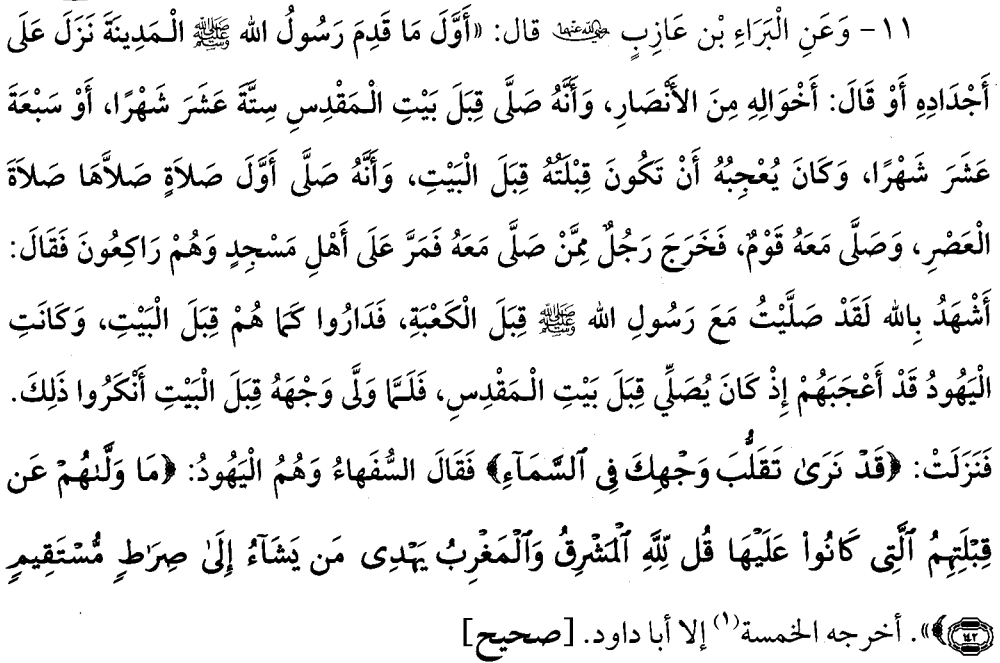 ١١- وَعَنِ الْبَرَاءِ بْن عَازِبٍ رضي الله عنهما قال: «أَوَّلَ مَا قَدِمَ رَسُولُ الله ﷺ الْـمَدِينَةَ نَزَلَ عَلَى
أَجْدَادِهِ أَوْ قَالَ: أَخْوَالِهِ مِنَ الأَنْصَارِ، وَأَنَّهُ صَلَّى قِبَلَ بَيْتِ الْـمَقْدِسِ سِتَّةَ عَشَرَ شَهْرًا، أَوْ سَبْعَةَ
عَشَرَ شَهْرًا، وَكَانَ يُعْجِبُهُ أَنْ تَكُونَ قِبْلَتُهُ قِبَلَ الْبَيْتِ، وَأَنَّهُ صَلَّى أَوَّلَ صَلاَةٍ صَلاَّهَا صَلاَةَ
الْعَصْرِ، وَصَلَّى مَعَهُ قَوْمٌ، فَخَرَجَ رَجُلٌ مِمَّنْ صَلَّى مَعَهُ فَمَرَّ عَلَى أَهْلِ مَسْجِدٍ وَهُمْ رَاكِعُونَ فَقَالَ:
أَشْهَدُ بِالله لَقَدْ صَلَّيْتُ مَعَ رَسُولِ الله ﷺ قِبَلَ الْكَعْبَةِ، فَدَارُوا كَمَا هُمْ قِبَلَ الْبَيْتِ، وَكَانَتِ
الْيَهُودُ قَدْ أَعْجَبَهُمْ إِذْ كَانَ يُصَلِّي قِبَلَ بَيْتِ الْـمَقْدِسِ، فَلَمَّا وَلَّى وَجْهَهُ قِبَلَ الْبَيْتِ أَنْكَرُوا ذَلِكَ.
فَنَزَلَتْ: ﴿قَدْ نَرَىٰ تَقَلُّبَ وَجْهِكَ فِى ٱلسَّمَآءِ﴾ فَقَالَ السُّفَهَاءُ وَهُمُ الْيَهُودُ: ﴿مَا وَلَّىٰهُمْ عَن
قِبْلَتِهِمُ ٱلَّتِى كَانُوا۟ عَلَيْهَا قُل لِّلَّهِ ٱلْمَشْرِقُ وَٱلْمَغْرِبُ يَهْدِى مَن يَشَآءُ إِلَىٰ صِرَٰطٍ مُّسْتَقِيمٍ
۝١٤٢﴾». أخرجه الخمسة(١) إلا أبا داود. [صحيح]